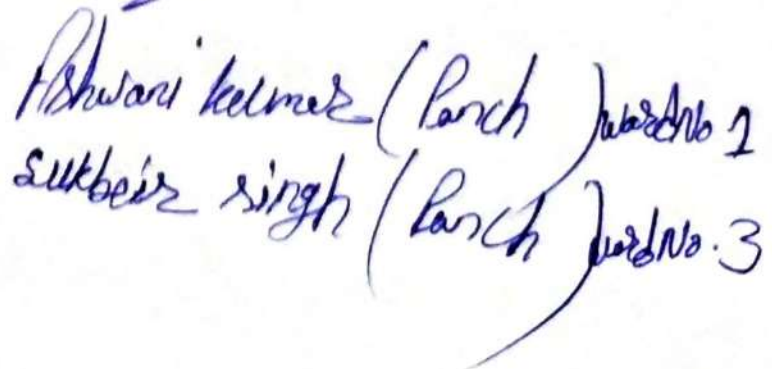 Ashwani kumar (Panch) ward No 1
sukbeir singh (Panch) ward No. 3